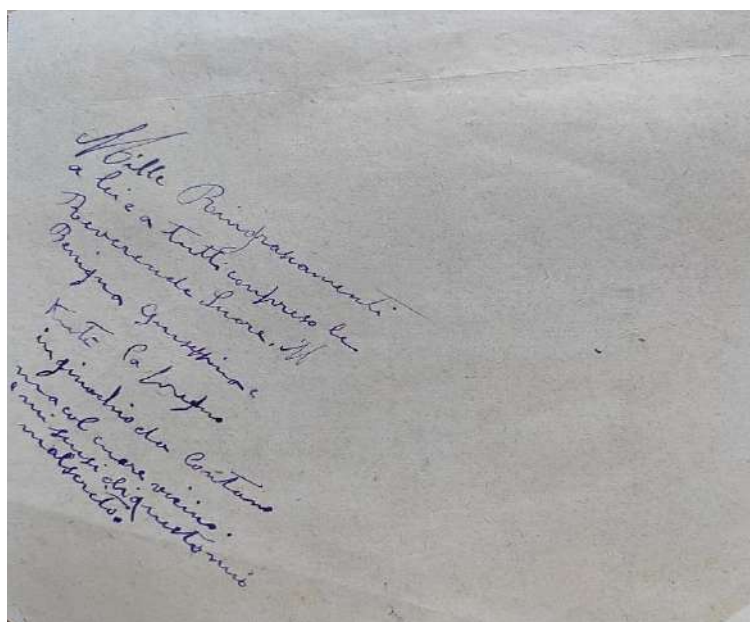 Mille Ringrasiamenti
a lei e a tutti compreso le
Reverende Suore, M
Benigna Giuseppina e
la prego
in ginochio da lontano
ma col cuore vicino.
mi scusi di questo mio
malscrito.